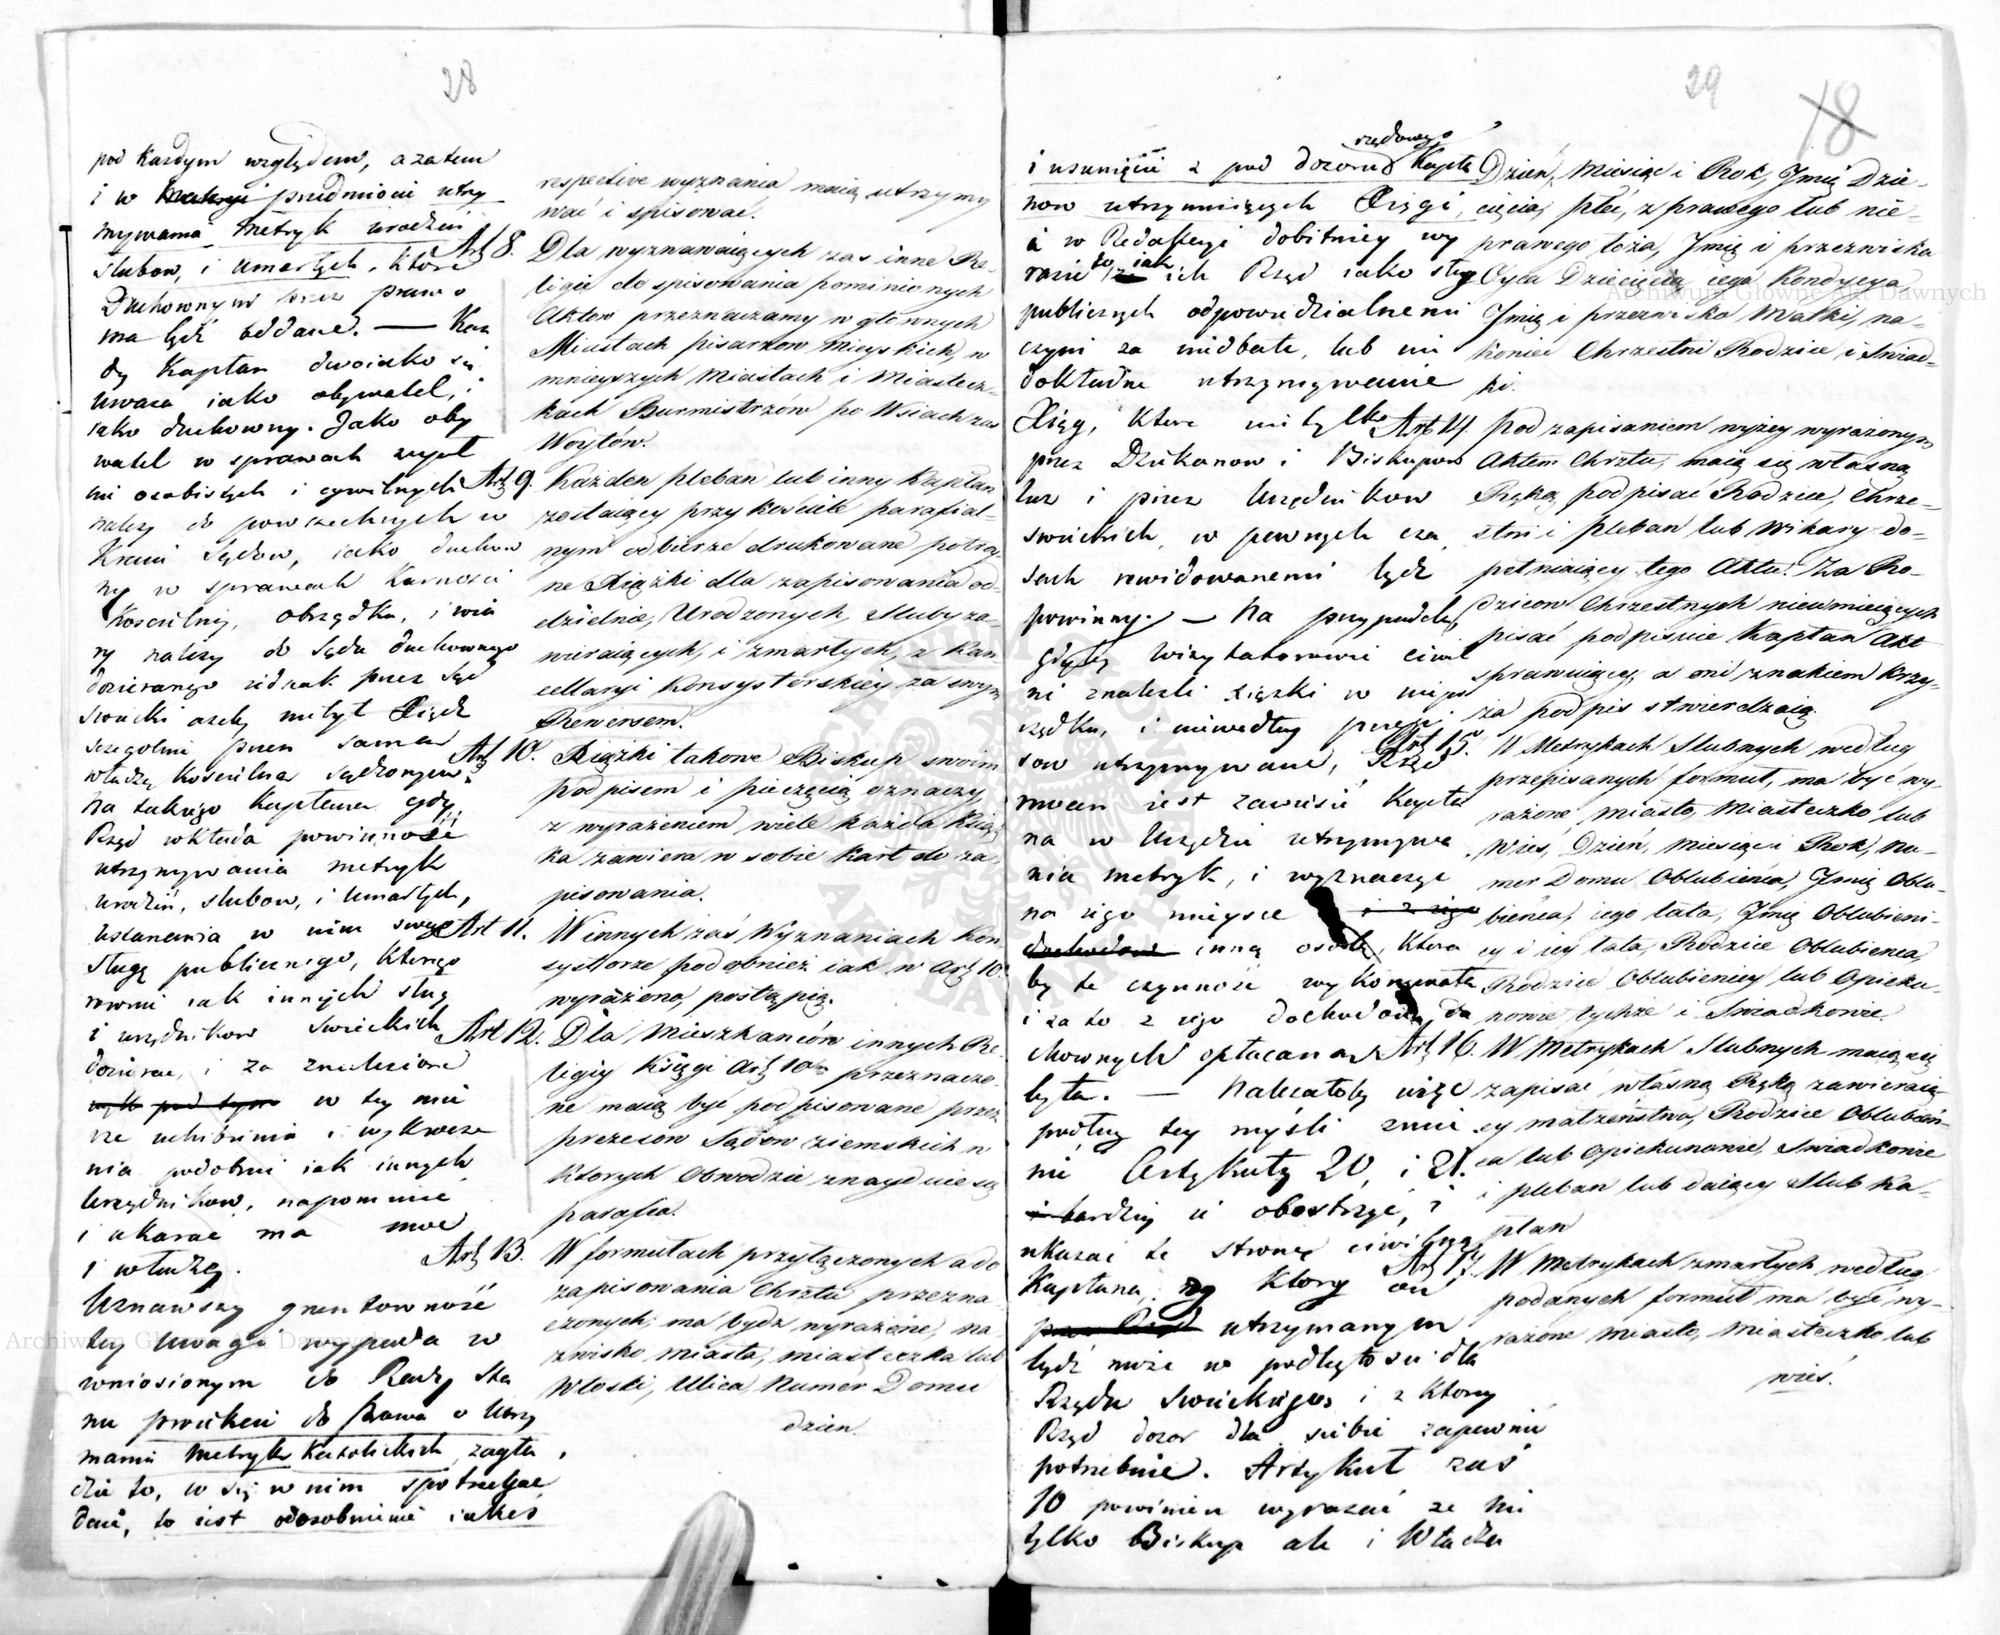 28
pod każdym względem, a zatem
i w materyi przedmiocie utrzy
mywania Metryk urodzin
Slubow, i umarłych, które
Duchownym przez prawo
ma być oddane. — Każ
dy Kapłan dwoiako się
uważa iako obywatel, i
iako duchowny. Jako oby
watel w sprawach
osobistych i cywilnych
należy do powszechnych w
Kraiu Sądow, iako duchow
ny w sprawach Karności
Kościelney, obrządku, i wia
ry należy do Sądu duchownego
przez Rząd
Swiecki ażeby niebył Xiądz
szczegolnie przez samą
władzę Kościelną sądzonym.
Na takiego Kapłana gdy
Rząd wkłada powinność
utrzymywania metryk
urodzin, slubow, i umarłych,
ustanawia w nim swego
sługę publicznego, którego
rowni iak innych sług
i urzędnikow Swieckich
dozierać, i za znalezione
w tey mie
rze uchibienia i wykrocze
nia podobnie iak innych
Urzędnikow, napomnieć
i ukarać ma moc
i władzę.
Uznawszy gruntowność
tey uwagi wypada w
wniosionym do Rady Sta
nu proiekcie do Prawa o Utrzy
maniu Metryk Katolickich, zagła
dzić to, co się w nim spostrzegać
daie, to iest odosobnienie iakieś
respective wyznania maią utrzymy
wać i spisować.
Art 8. Dla wyznawaiących zas inne Re-
ligie do spisowania pominionych
Aktow przeznaczamy w głownych
Miastach pisarzow Mieyskich, w
mnieyszych Miastach i Miastecz-
kach Burmistrzów po Wsiach zas
Woytów.
Art 9. Każden pleban lub inny Kapłan
zostaiący przy kościele parafial-
nym odbierze drukowane potrzeb-
ne Xiążki dla zapisowania od-
dzielnie, Urodzonych, Sluby za-
wieraiących, i zmarłych, z Kan-
cellaryi Konsystorskiey za swym
Rewersem.
Art 10. Xiążki takowe Biskup swoim
podpisem i pieczęcią oznaczy
z wyrażeniem wiele każda Xiąż
ka zawiera w sobie kart do za-
pisowania.
Art 11. W innych zaś Wyznaniach Kon
systorze podobnież iak w Art 10.
wyrażono, postąpią.
Art 12. Dla Mieszkanców innych Re-
ligiy Księgi Art 10m przeznaczo-
ne maią być podpisowane przez
prezesow Sądow ziemskich w
ktorych Obwodzie znayduie się
parafia.
Art 13. W formułach przyłączonych a do
zapisowania Chrztu przezna-
czonych, ma bydz wyrażone, na
zwisko miasta, miasteczka lub
Wioski, Ulica, Numer Domu
dzien.
29
18
rządowego
i usunięcie z pod dozoru Kapła
now utrzymuiących Xięgi,
a w Redakcyi dobitniey wy
razić to iak ich Rząd iako sług
publicznych odpowiedzialnemi
czyni za niedbałe, lub nie
dokładne utrzymywanie
Xiąg, które nietylko
przez Dziekanow i Biskupow
lecz i przez Urzędnikow
swieckich, w pewnych cza
sach rewidowanemi bydz
powinny. — Na przypadek
gdyby Wizytatorowie cywil
ni znaleźli xiążki w niepo
rządku, i niewedług przepi
sow utrzymywane, Rząd
mocen iest zawiesić Kapła
na w Urzędzie utrzymywa
nia metryk, i wyznaczyć
na iego mieysce i z iego
dochodow inną osobę, która
by te czynność wykonywała
i za to z iego dochodow du
chownych opłacana
była. — Należałoby więc
podług tey myśli zmie
nić Artykuły 20, i 21.
i bardziey ie obostrzyć, i
ukazać te stronę cywilną
Kapłana, w ktorey on
utrzymanym
bydź może w podległosci dla
Rządu Swieckiego, i z ktorey
Rząd dozor dla siebie zapewnić
potrzebuie. Artykuł zaś
10 powinien wyrażać że nie
tylko Biskup ale i Władza
Dzień, Miesiąc i Rok, Imię Dzie-
cięcia, płeć, z prawego lub nie-
prawego łoża, Imię i przezwisko
Oyca Dziecięcia, iego Kondycya,
Imię i przezwisko Matki, na-
koniec Chrzestni Rodzice i Swiad-
ki.
Art 14. Pod zapisaniem wyżey wyrażonym
Aktem Chrztu, maią się własną
Ręką podpisać Rodzice, Chrze-
stni i pleban lub Wikary do-
pełniaiący tego Aktu. Za Ro-
dzicow Chrzestnych nieumieiących
pisać podpisuie Kapłan Akt
sprawuiący, a oni znakiem Krzy-
ża podpis stwierdzaią.
Art 15. W Metrykach Slubnych według
przepisanych formuł, ma być wy-
rażone miasto, Miasteczko lub
Wieś, Dzień, Miesiąc i Rok, Nu-
mer Domu Oblubienca, Imię Oblu-
bienca, iego lata, Imię Oblubieni-
cy i iey lata, Rodzice Oblubienca,
Rodzice Oblubienicy lub Opieku-
nowie tychże i Swiadkowie.
Art 16. W Metrykach Slubnych maią się
zapisać własną Ręką zawieraią
cy małzeństwo, Rodzice Oblubień-
ca lub Opiekunowie, Swiadkowie
i pleban lub daiący Slub Ka-
płan
Art 17. W Metrykach zmarłych według
podanych formuł ma być wy-
rażone Miasto, Miasteczko lub
wieś.
Archiwum Główne Akt Dawnych
Archiwum Główne Akt Dawnych